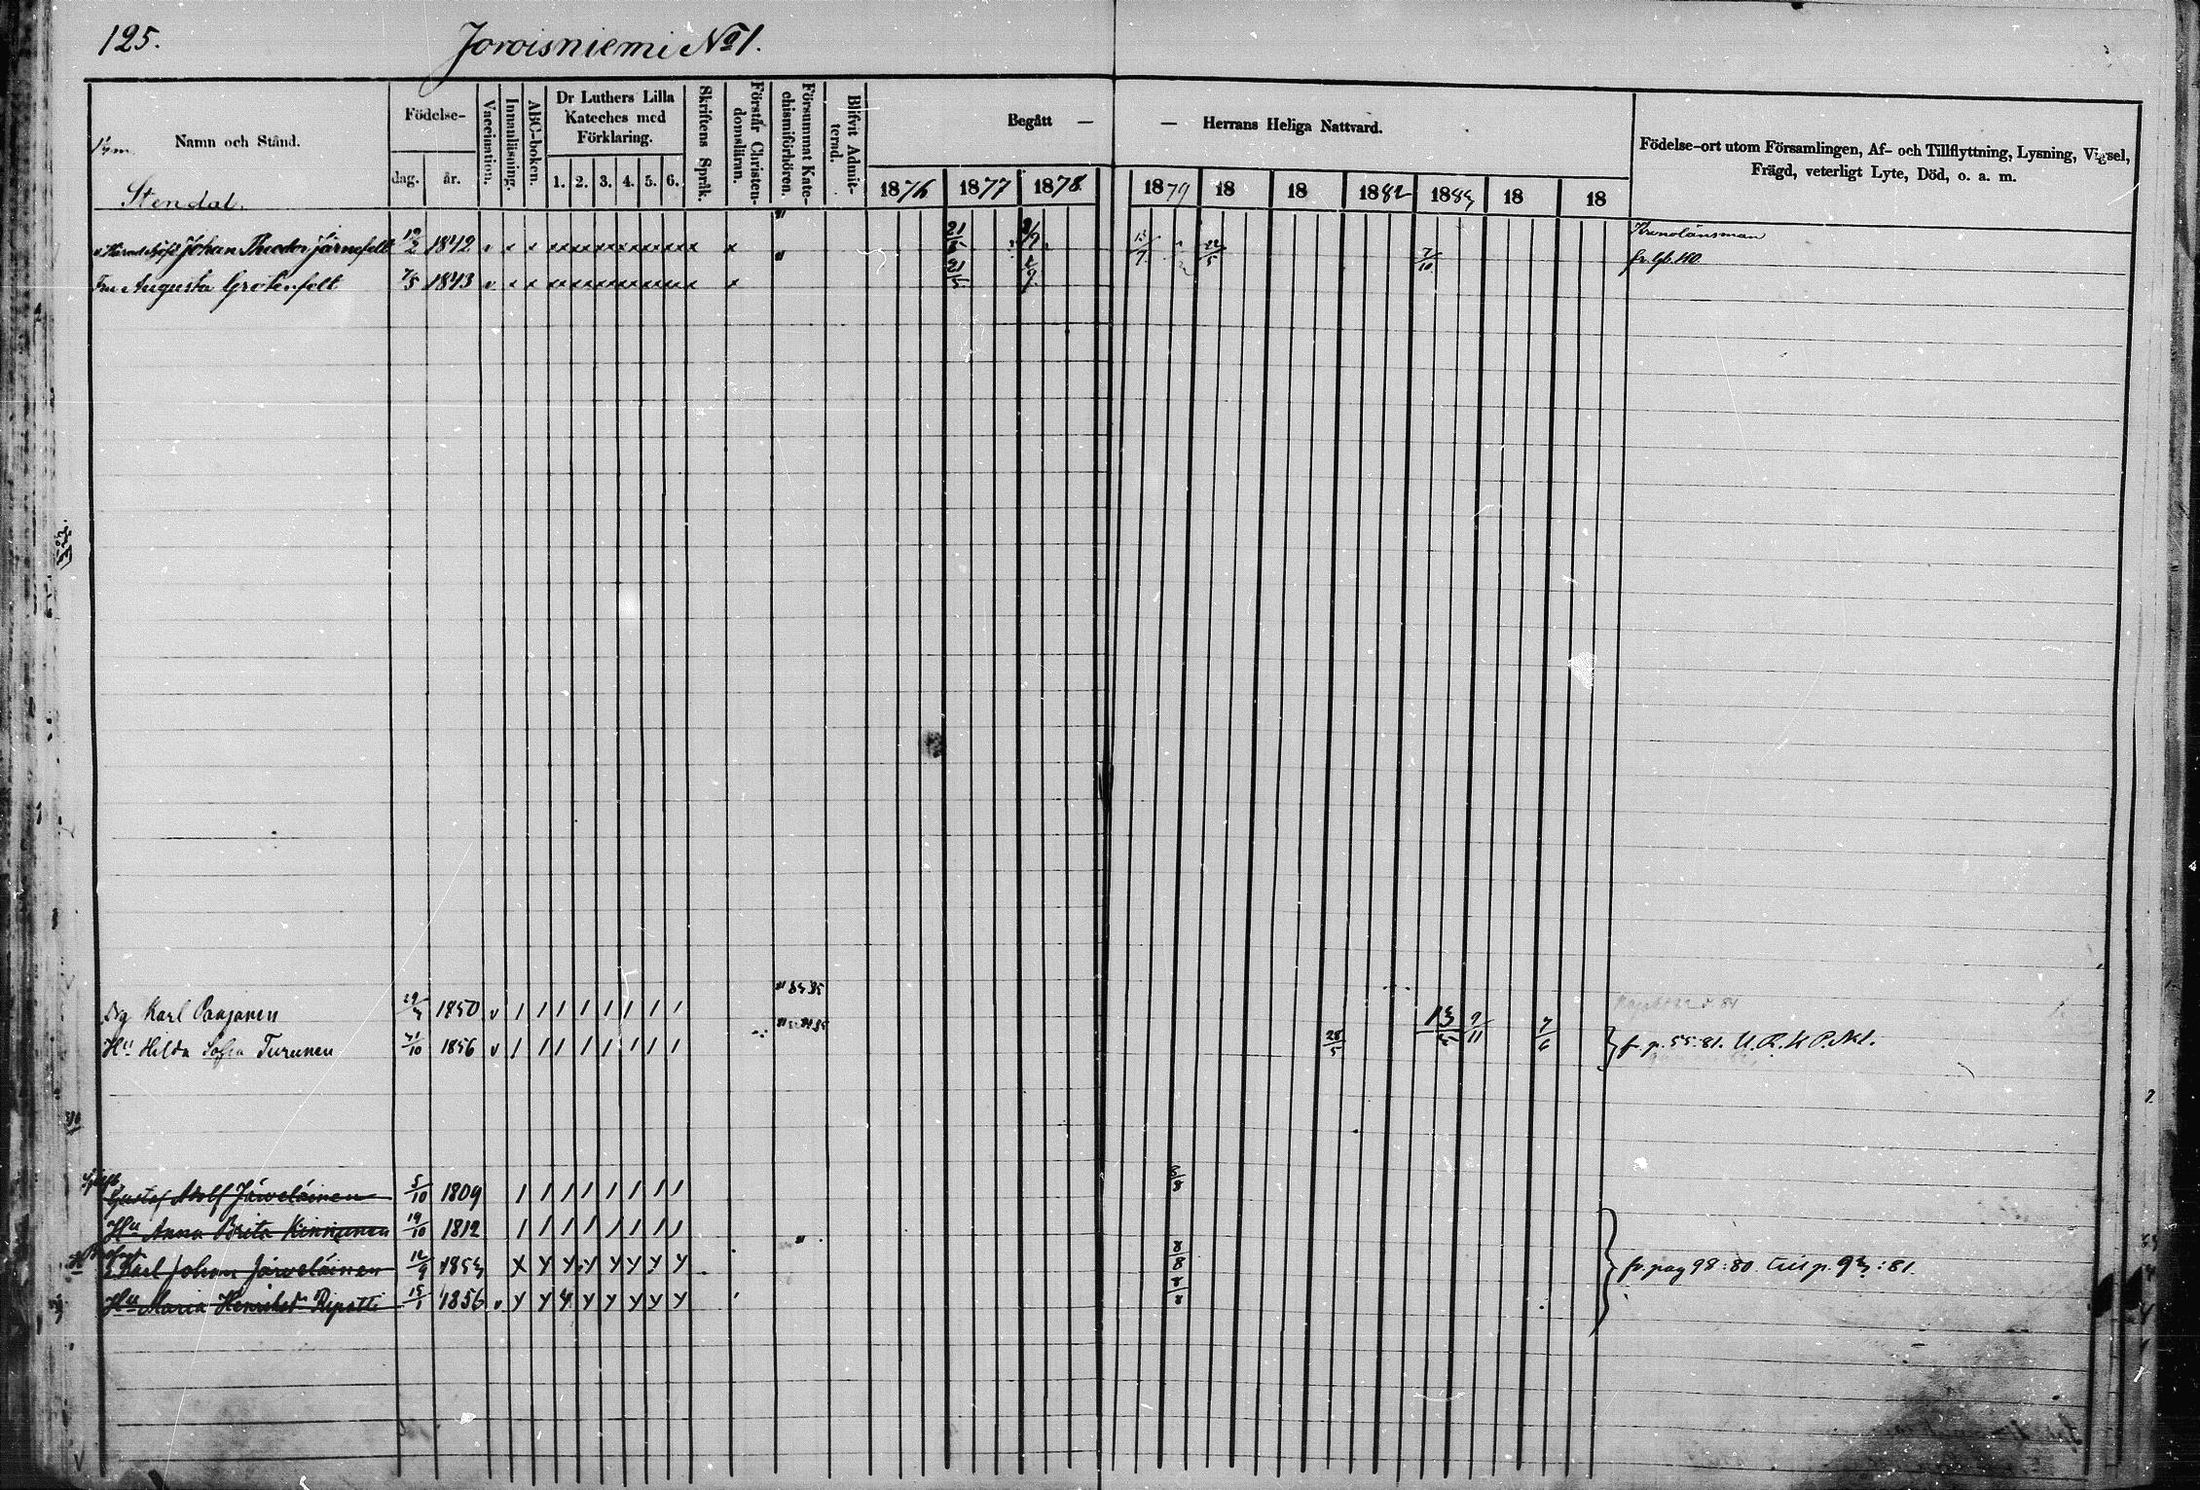 125. Joroisniemi No 1.
Namn och Stånd.
Födelse-
dag. år.
Vaccination.
Innanläsning.
ABC-boken.
Dr Luthers Lilla Kateches med Förklaring.
1. 2. 3. 4. 5. 6.
Skriftens Språk.
Förstår Christendomsläran.
Försummat Katechismiförhören.
Blifvit Admitterad.
Begått — — Herrans Heliga Nattvard.
1876 1877 1878 1879 18 18 1882 1883 18 18
Födelse-ort utom Församlingen, Af- och Tillflyttning, Lysning, Vigsel,
Frägd, veterligt Lyte, Död, o. a. m.
Stendal.
Kronolänsman
Johan Theodor Järnefelt 12/2 1842 21/5 13/7 22/5 7/10
Fru Augusta Grotenfelt 7/5 1843 21/5
Karl Paajanen 1850
Hu Hilda Sofia Turunen 31/10 1856 28/5 13/5 9/11 7/6 fr. p. 55:81.
Gustaf Adolf Järveläinen 5/10 1809 8/8
Hu Anna Brita Kinnunen 19/10 1812
Karl Johan Järveläinen 12/9 1853 8/8 fr. pag 98:80. till p. 93:81.
Hu Maria Henriket Ripatti 15/1 1856 8/8